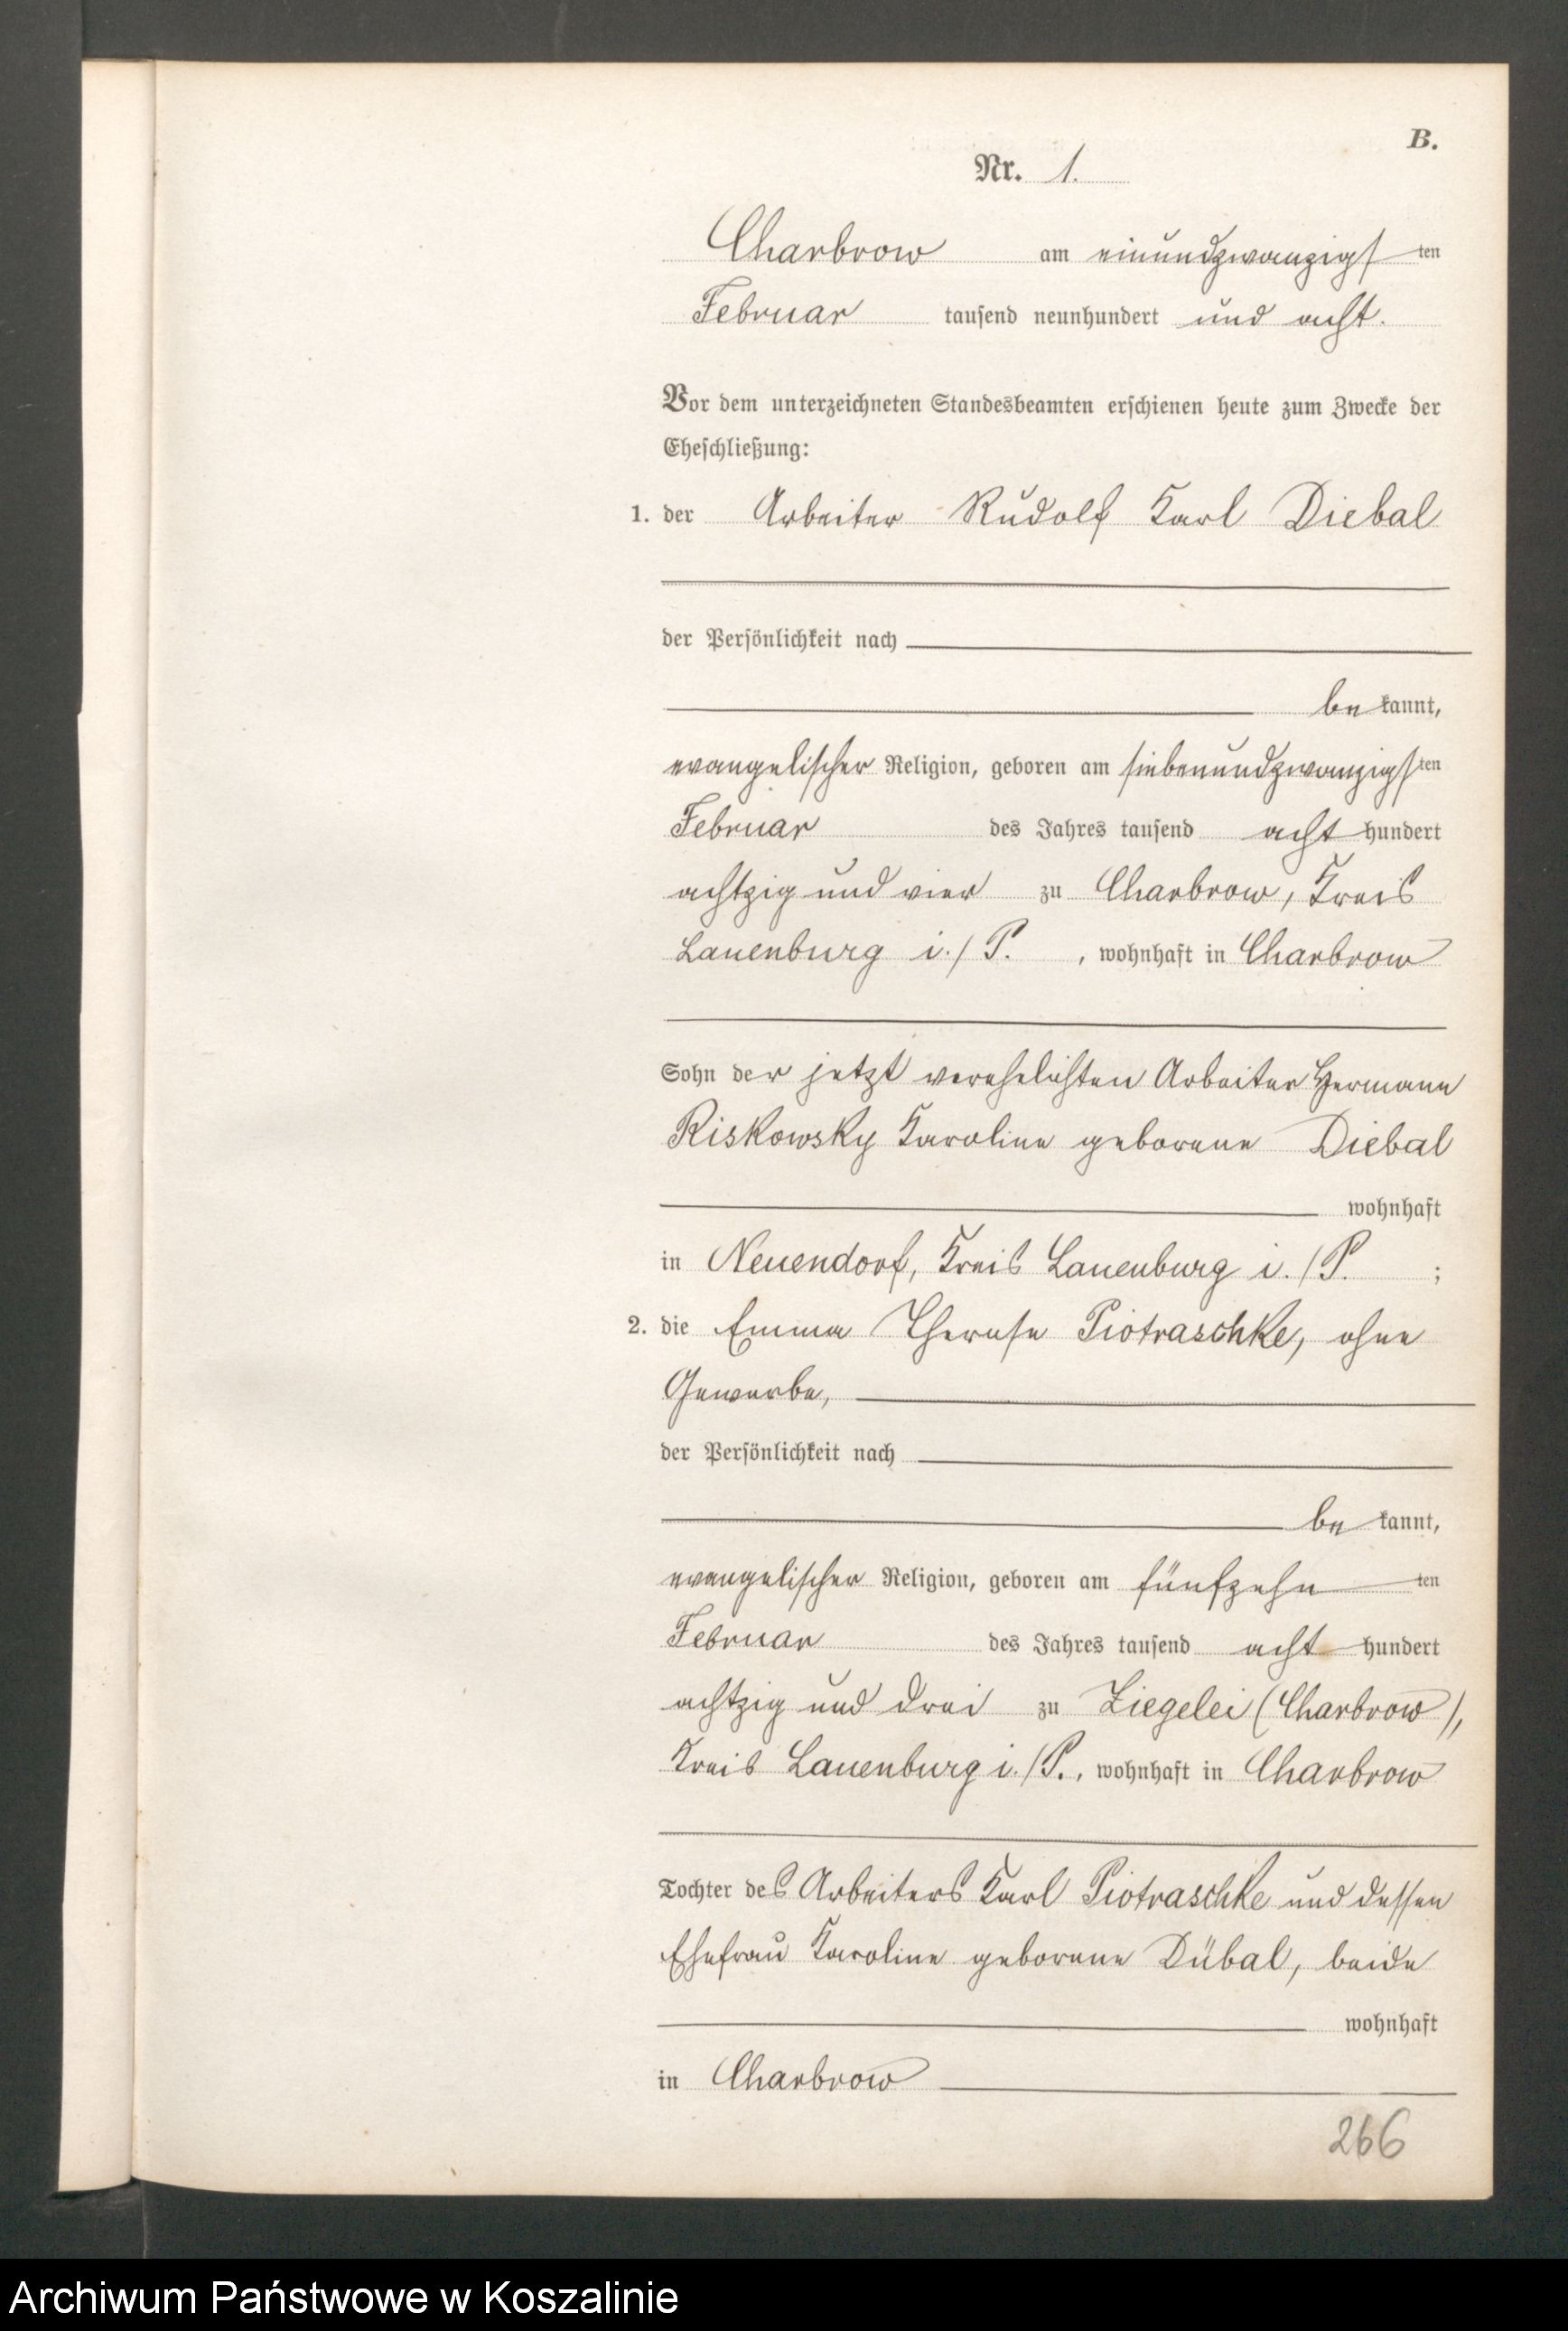 B.
Nr. 1.
Charbrow am einundzwanzigsten
Februar tausend neunhundert und acht.
Vor dem unterzeichneten Standesbeamten erschienen heute zum Zwecke der
Eheschließung:
1. der Arbeiter Rudolf Karl Diebal
der Persönlichkeit nach
be kannt,
evangelischer Religion, geboren am siebenundzwanzigsten
Februar des Jahres tausend acht hundert
achtzig und vier zu Charbrow, Kreis
Lauenburg i./P. , wohnhaft in Charbrow
Sohn der jetzt verehelichten Arbeiter Hermann
Riskowsky Karoline geborene Diebal
wohnhaft
in Neuendorf, Kreis Lauenburg i./P. ;
2. die Emma Therese Piotraschke, ohne
Gewerbe,
der Persönlichkeit nach
be kannt,
evangelischer Religion, geboren am fünfzehn ten
Februar des Jahres tausend acht hundert
achtzig und drei zu Ziegelei (Charbrow),
Kreis Lauenburg i./P., wohnhaft in Charbrow
Tochter des Arbeiters Karl Piotraschke und dessen
Ehefrau Karoline geborene Dübal, beide
wohnhaft
in Charbrow
266
Archiwum Państwowe w Koszalinie